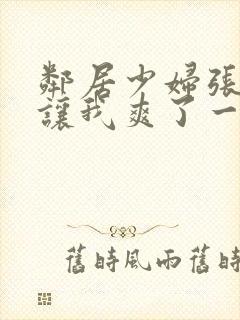 鄰居少婦張
讓我爽了一
舊時風雨舊時